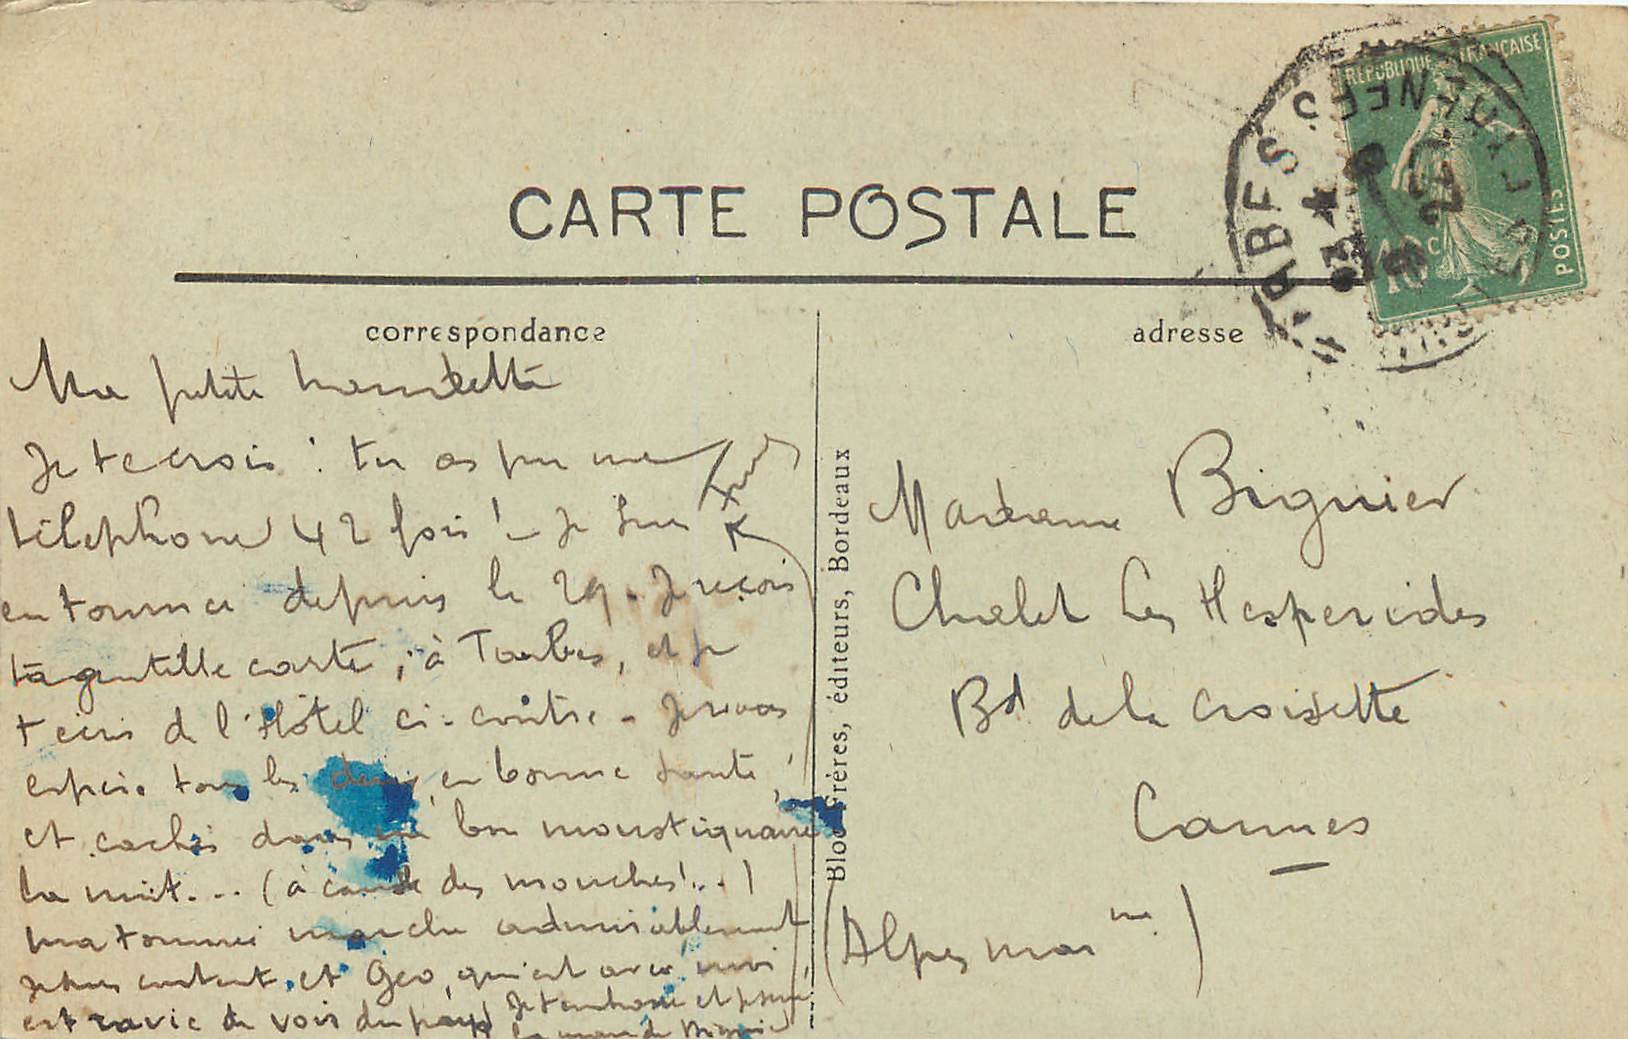 CARTE POSTALE
correspondance
adresse
REPUBLIQUE FRANÇAISE
POSTES
10c
TARBES
PYRENEES
Ma petite
Je te crois : tu as pu me
téléphoner 42 fois ! - Je suis
en tournée depuis le 29. Je reçois
ta gentille carte, à Tarbes, et je
t'écris de l'Hôtel ci-contre - Je vous
espère tous les deux, en bonne santé,
et cachés dans un bon moustiquaire
la nuit... (à cause des mouches!..)
Ma tournée marche admirablement
Je suis content, et Géo, qui est avec moi,
est ravie de voir du pays. Je t'embrasse et
la main de Bignier
Bloc Frères, éditeurs, Bordeaux
Madame Bignier
Chalet Les Hesperides
Bd de la Croisette
Cannes
(Alpes mar mes)